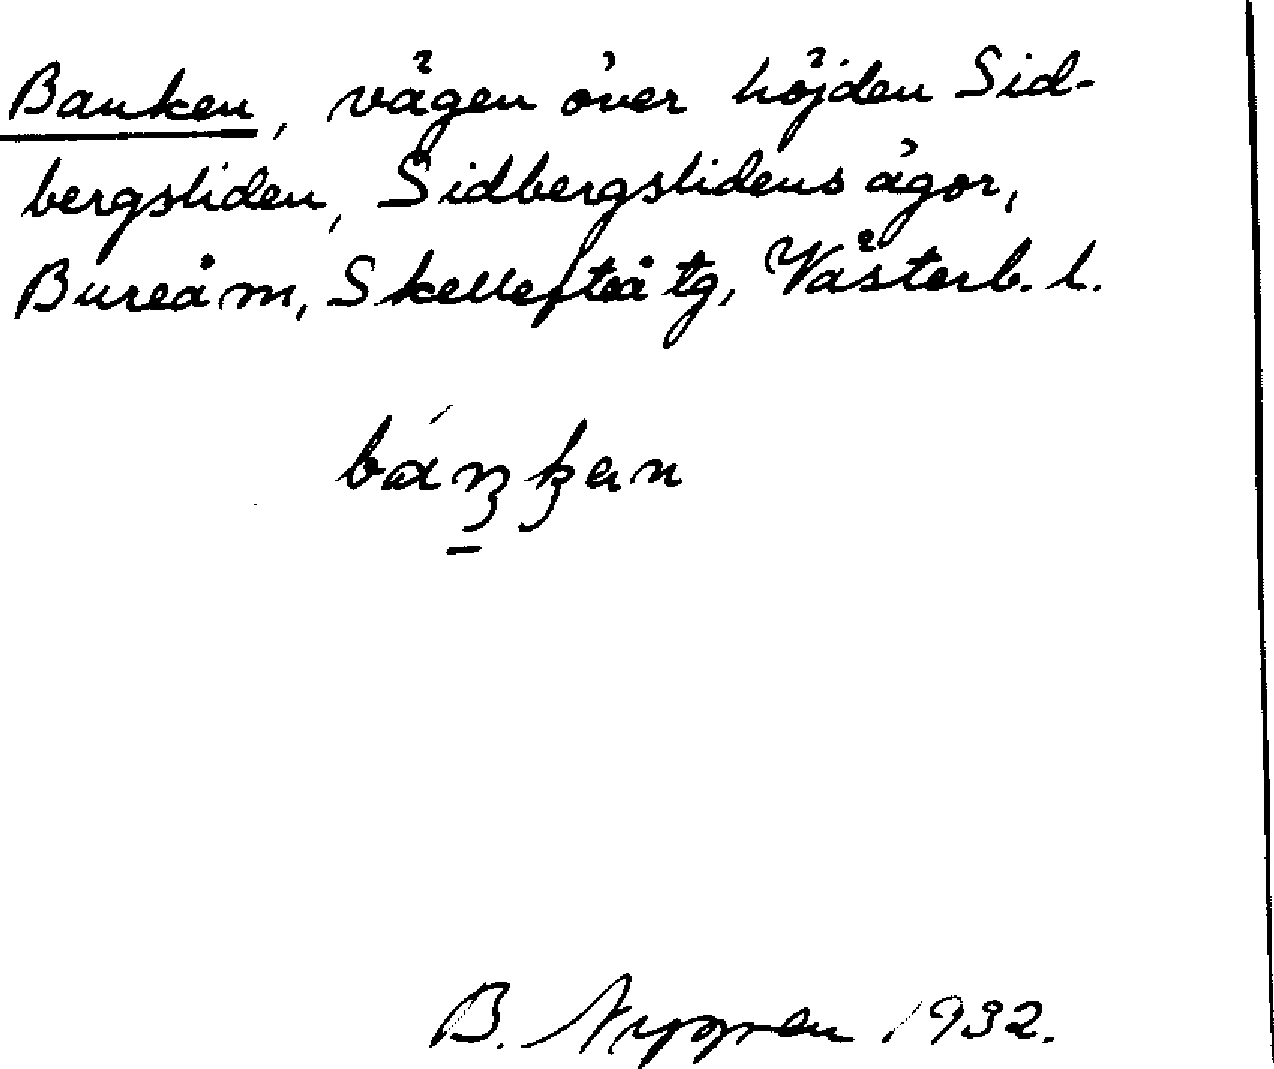 Banken, vägen över höjden Sid-
bergsliden, Sidbergslidens ägor,
Bureå m, Skellefteå tg, Västerb. l.
B. Nygren 1932.